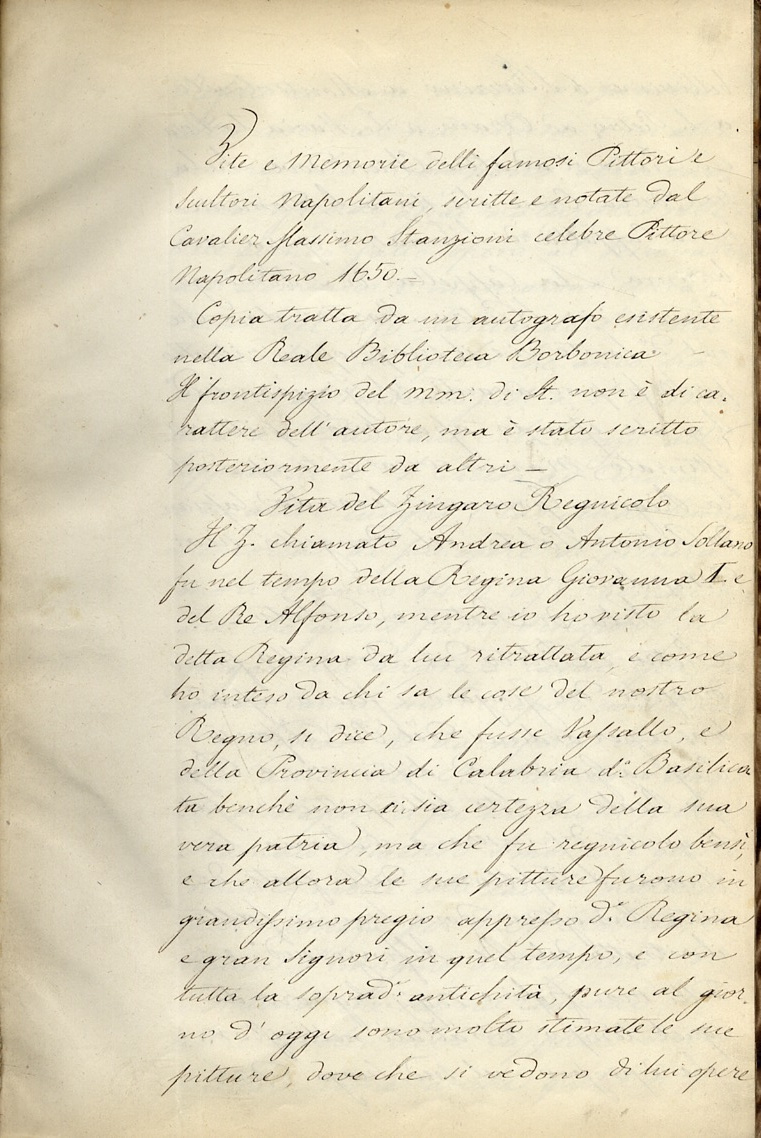 Vite e Memorie delli famosi Pittori e
Scultori Napolitani, scritte e notate dal
Cavalier Massimo Stanzioni celebre Pittore
Napolitano 1650 –
Copia tratta da un autografo esistente
nella Reale Biblioteca Borbonica –
Il frontispizio del mm. di St. non è di ca-
rattere dell'autore, ma è stato scritto
posteriormente da altri —
Vita del Zingaro Regnicolo
Il Z. chiamato Andrea o Antonio Sollano
fu nel tempo della Regina Giovanna I. e
del Re Alfonso, mentre io ho visto la
detta Regina da lui ritrattata, e come
ho inteso da chi sa le cose del nostro
Regno, si dice, che fusse Vassallo, e
della Provincia di Calabria d.ª Basilica
ta benchè non ci sia certezza della sua
vera patria, ma che fu regnicolo bensì,
e che allora le sue pitture furono in
grandissimo pregio appresso d.ª Regina
e gran Signori in quel tempo, e con
tutta la soprad.ª antichità, pure al gior-
no d'oggi sono molto stimate le sue
pitture, dove che si vedono di lui opere